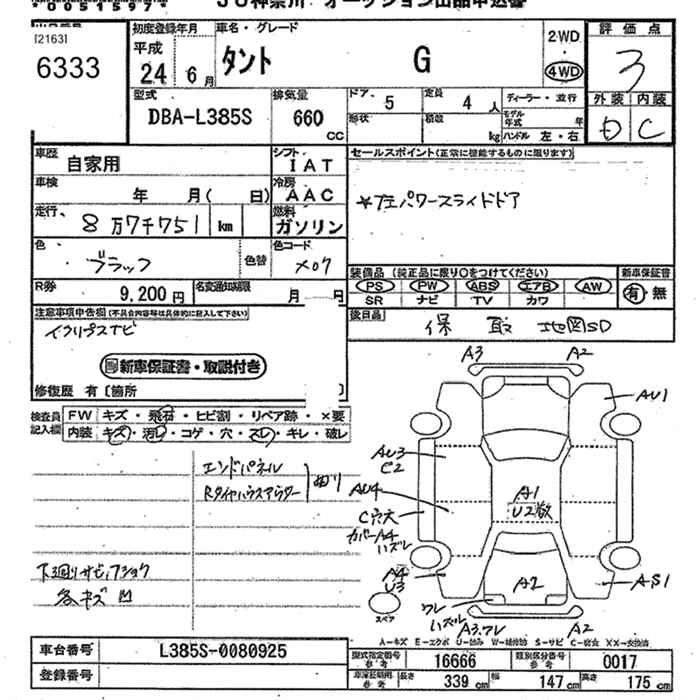 00515971
JU神奈川 オークション出品申込書
[2163]
6333
初度登録年月
平成
24 年 6 月
車名・グレード
タント G
2WD
4WD
評価点
3
外装 内装
D C
型式
DBA-L385S
排気量
660
CC
ドア 5
定員 4 人
ディーラー・並行
形状
積数 kg
モデル年式 年
ハンドル 左・右
車歴
自家用
シフト
IAT
セールスポイント(正常に機能するものに限ります)
*左パワースライドドア
車検
年 月( 日)
冷房
AAC
走行
8万7千751 km
燃料
ガソリン
色
ブラック
色替
色コード
X07
R券
9,200円
名変通知期限
月
装備品(純正品に限り○をつけてください)
PS PW ABS エアB AW
SR ナビ TV カワ
新車保証書
有・無
後日品
保 取 地図SD
注意事項申告欄(不具合内容等は具体的に記入して下さい)
イクリプスナビ
新車保証書・取説付き
修復歴 有〔箇所 〕
検査員記入欄
FW キズ・飛石・ヒビ割・リペア跡・×要
内装 キズ・汚レ・コゲ・穴・スレ・キレ・破レ
エンドパネル
Rタイヤハウスアウター
曲り
下廻りサビ,フショク
各キズ凹
A3
A2
AU1
AU3
C2
AU4
C穴大
カバーA4
ハズレ
A4
U3
A1
U2数
A2
AS1
ワレ
ハズレ
A3.ワレ
A2
スペア
A-キズ E-エクボ U-凹み W-補修跡 S-サビ C-腐食 XX-交換済
車台番号
L385S-0080925
登録番号
型式指定番号
参考
16666
類別区分番号
参考
0017
車庫証明用
参考
長さ
339 cm
幅
147 cm
高さ
175 cm